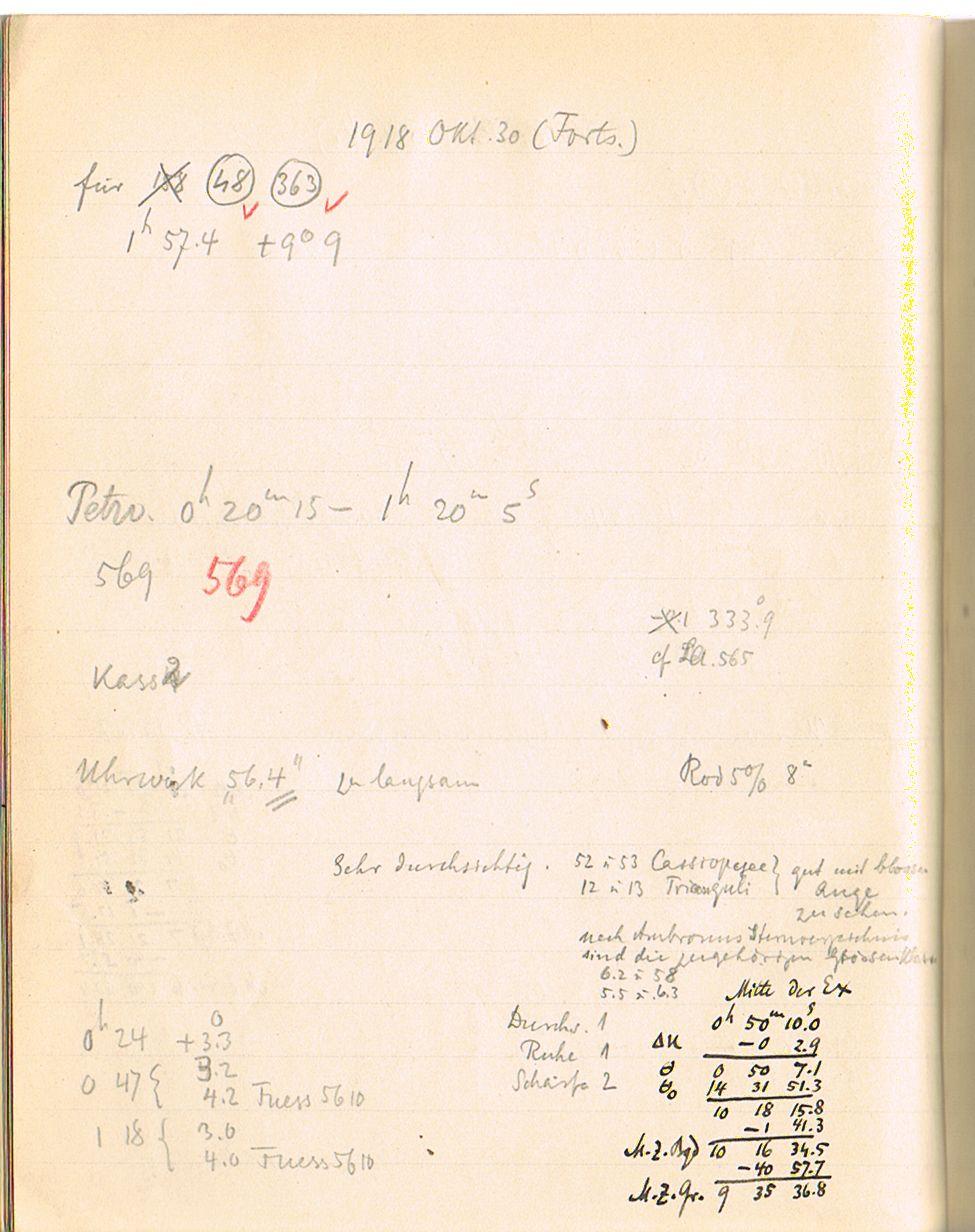 1918 Okt. 30 (Forts.)
für 48 363
1h 57.4 +9° 9
Petzv. 0h 20m 15 – 1h 20m 5s
569 569
333°.9
cf. 565
Kass 2
Uhrwerk 56.4" zu langsam Rod 5% 8m
Sehr durchsichtig. 52 u 53 Cassiopejae } gut mit blossem
12 u 13 Trianguli } Auge
zu sehen.
nach Ambronns Sternverzeichnis
sind die zugehörigen Grössen
6.2 u 5.8
5.5 u 6.3
Mitte der Ex
0h 50m 10.0s
Δu –0 2.9
θ 0 50 7.1
θ₀ 14 31 51.3
10 18 15.8
–1 41.3
M.Z.Bgd 10 16 34.5
–40 57.7
M.Z.Gr. 9 35 36.8
Durchs. 1
Ruhe 1
Schärfe 2
0
0h 24 +3.3
0 47 { 3.2
4.2 Fuess 5610
1 18 { 3.0
4.0 Fuess 5610